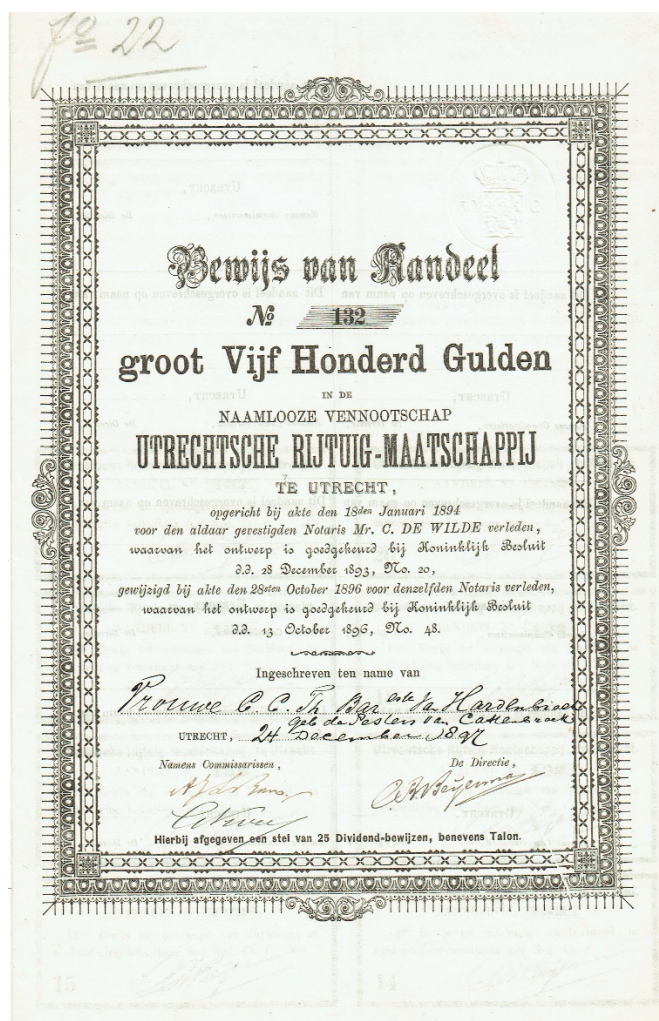 fo 22
Bewijs van Aandeel
No 132
groot Vijf Honderd Gulden
IN DE
NAAMLOOZE VENNOOTSCHAP
UTRECHTSCHE RIJTUIG-MAATSCHAPPIJ
TE UTRECHT,
opgericht bij akte den 18den Januari 1894
voor den aldaar gevestigden Notaris Mr. C. DE WILDE verleden,
waarvan het ontwerp is goedgekeurd bij Koninklijk Besluit
d.d. 28 December 1893, No. 20,
gewijzigd bij akte den 28sten October 1896 voor denzelfden Notaris verleden,
waarvan het ontwerp is goedgekeurd bij Koninklijk Besluit
d.d. 13 October 1896, No. 48.
Ingeschreven ten name van
Vrouwe C. C. Th. Baresse van Hardenbroek
geb de Pesters van Cattenbroek
UTRECHT, 24 December 1897
Namens Commissarissen, De Directie,
Hierbij afgegeven een stel van 25 Dividend-bewijzen, benevens Talon.